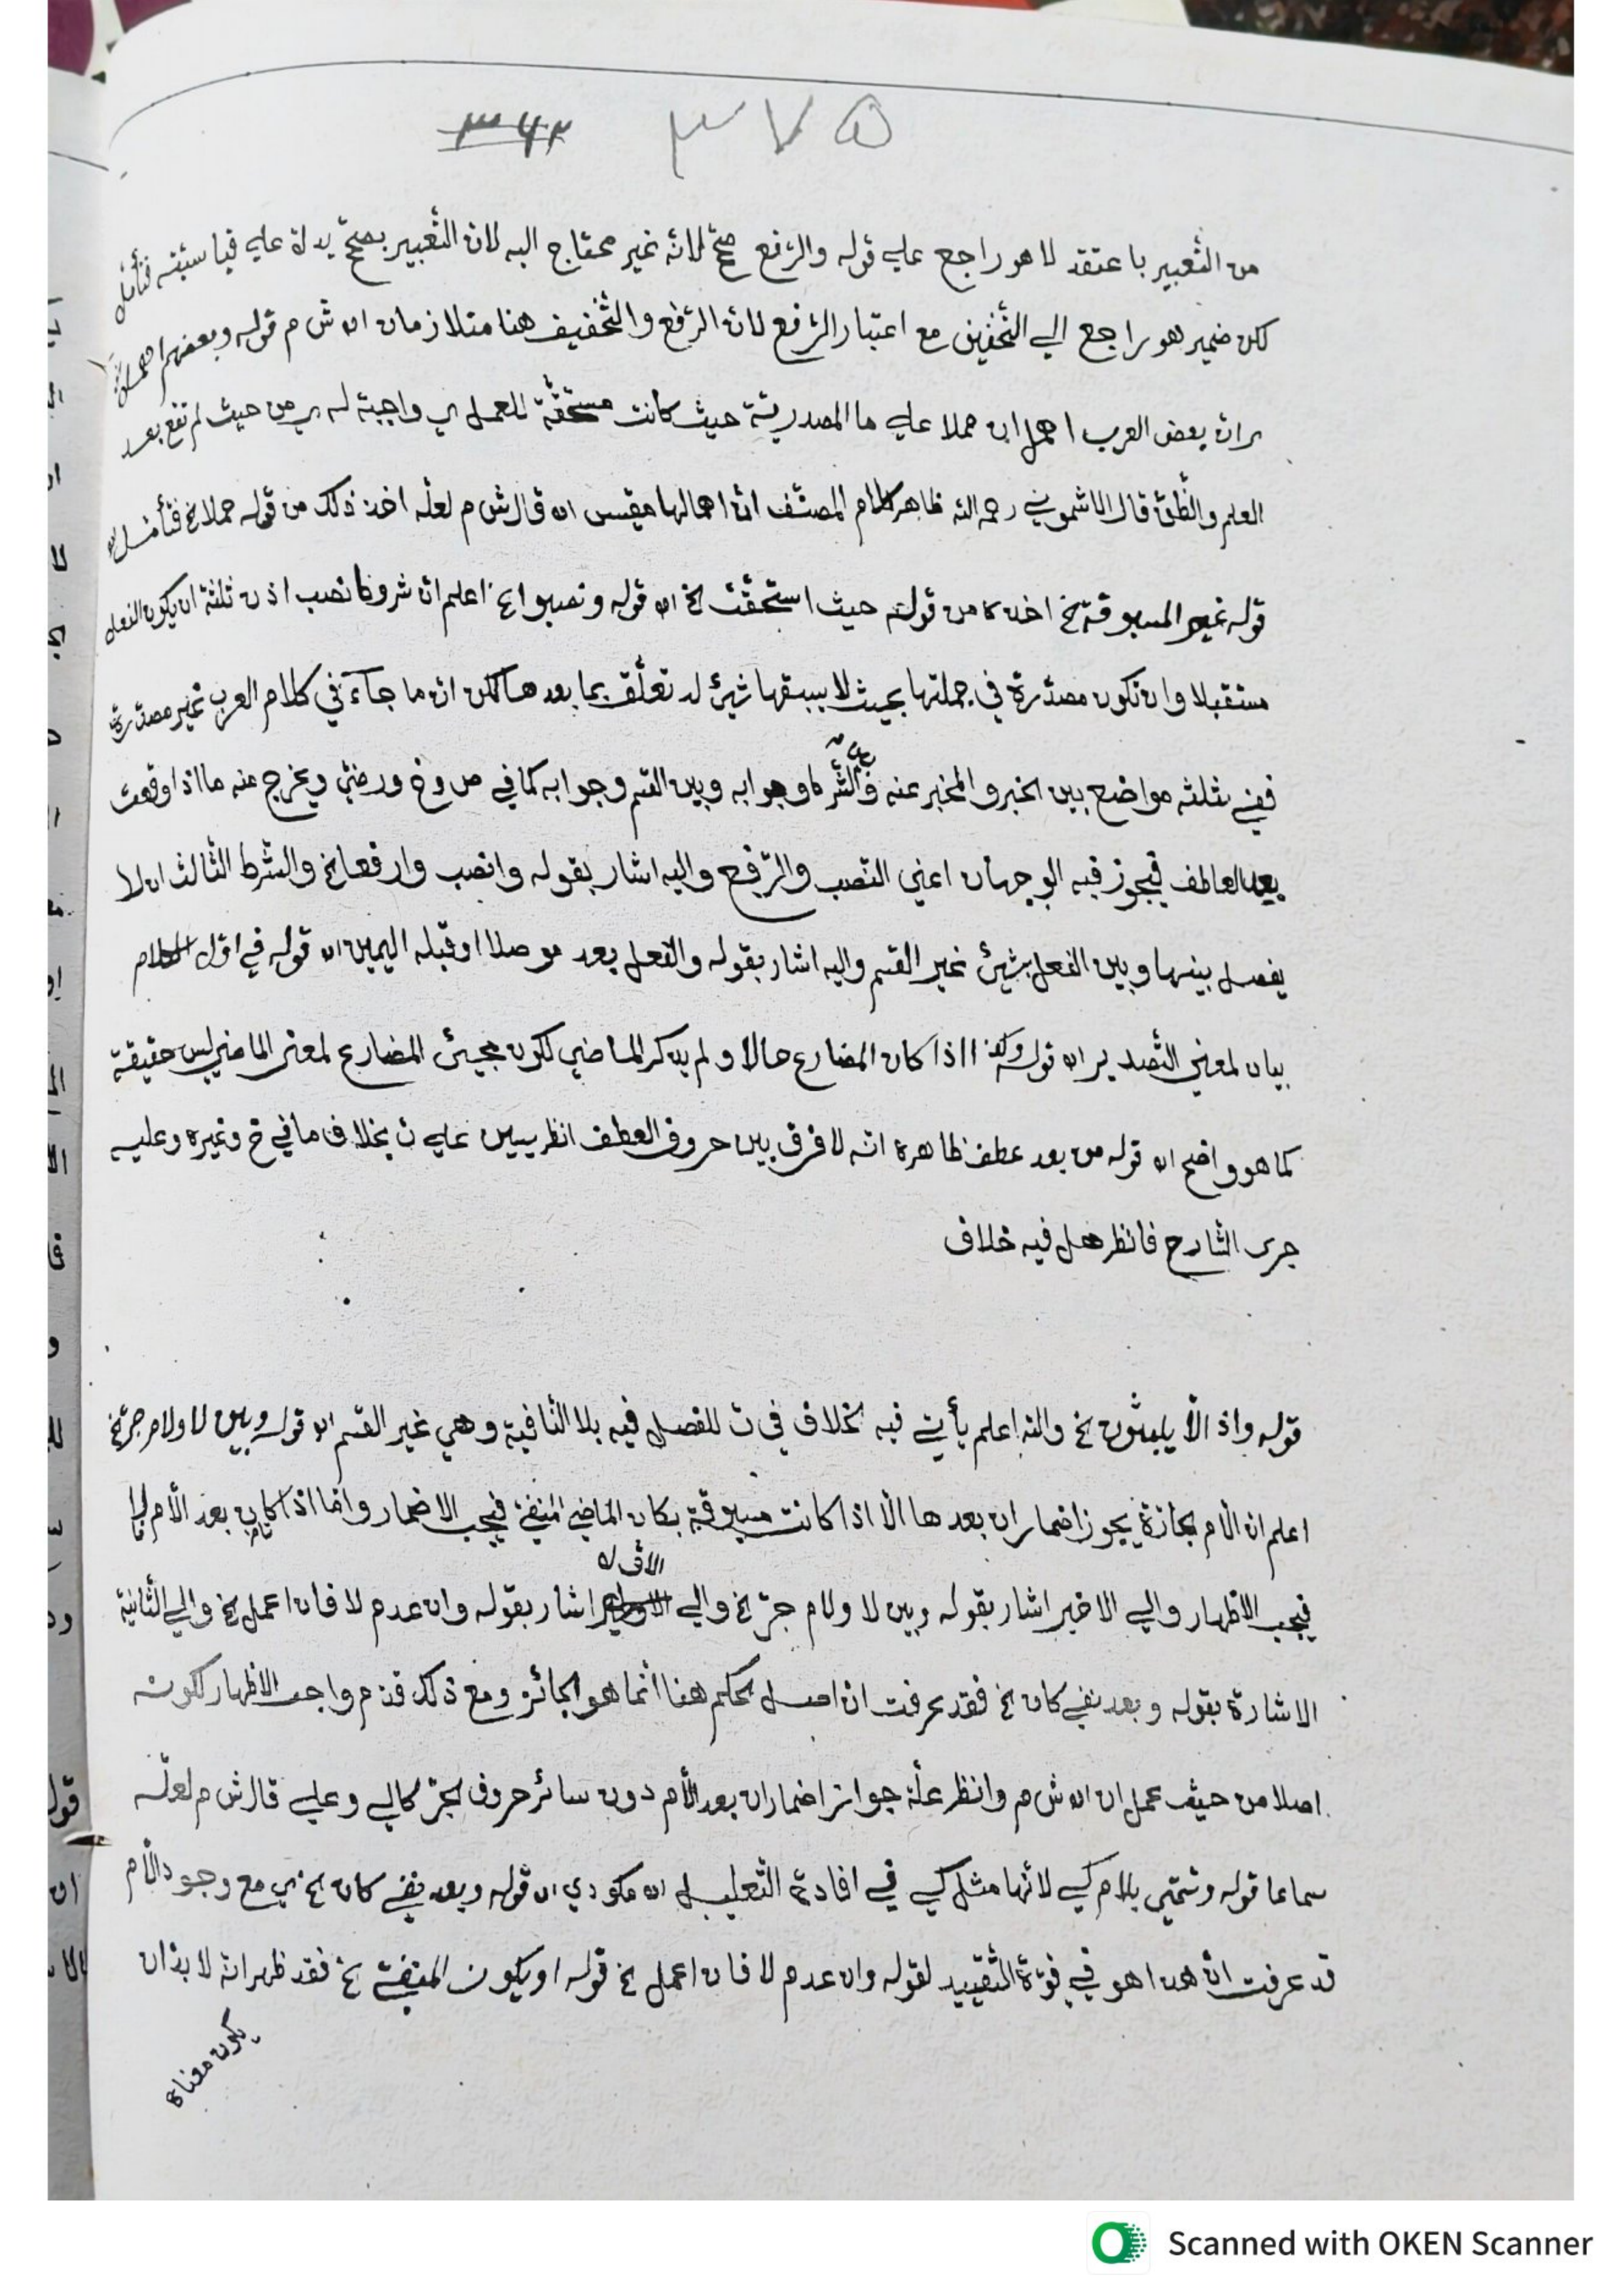 ٣٦٢ ٣٧٥
من التعبير باعتقد لا هو راجع علي قوله والرفع صحّ لانه غير محتاج اليه لان التعبير بصحّ يدل عليه فيما سبق فتأمل
لكن ضمير هو راجع الي التخفيف مع اعتبار الرّفع لان الرّفع والتّخفيف هنا متلازمان اه ش م قوله وبعضهم اهمل
اي ان بعض العرب اهمل ان حملا علي ما المصدريّة حيث كانت مستحقّة للعمل اي واجبة له اي من حيث لم تقع بعد
العلم والظّنّ قال الاشموني رحمه الله ظاهر كلام المصنّف انّ اهمالها مقيس اه قال ش م لعلّه اخذ ذلك من قوله حملا الخ فتأمّل
قوله غير المسبوقة الخ اخذها من قوله حيث استحقّت الخ اه قوله ونصبوا الخ اعلم ان شروط نصب اذن ثلثة ان يكون الفعل
مستقبلا وان تكون مصدّرة في جملتها بحيث لا يسبقها شيئ له تعلّق بما بعدها لكن ان ما جآء في كلام العرب غير مصدّرة
ففي ثلثة مواضع بين الخبر والمخبر عنه والشّرط وجوابه وبين القسم وجوابه كما في ص و خ ورضيّ ويخرج منه ما اذا وقعت
بعد العاطف فيجوز فيه الوجهان اعني النّصب والرّفع واليه اشار بقوله وانصب وارفعا الخ والشّرط الثّالث ان لا
يفصل بينها وبين الفعل بشيئ غير القسم واليه اشار بقوله والفعل بعد موصلا او قبله اليمين اه قوله في اوّل الكلام
بيان لمعني التّصدير اه قوله وكذا اذا كان المضارع حالا ولم يذكر الماضي لكون مجيئ المضارع لمعني الماضي ليس حقيقة
كما هو واضح اه قوله من بعد عطف ظاهره انّه لا فرق بين حروف العطف انظر يسين علي ت بخلاف ما في خ وغيره وعليه
جري الشّارح فانظر هل فيه خلاف
قوله واذ الّا يلبثون الخ والله اعلم يأتي فيه الخلاف في ت للفصل فيه بلا النّافية وهي غير القسم اه قوله وبين لا ولام جرّ الخ
اعلم ان الّام الجارّة يجوز اضمار ان بعدها الّا اذا كانت مسبوقة بكان الماضي المنفيّ فيجب الاضمار وامّا اذا كان بعد الّام لا
فيجب الاظهار والي الاخير اشار بقوله وبين لا ولام جرّ الخ والي الاوّل اشار بقوله وان عدم لا فان اعمل الخ والي الثّانية
الاشارة بقوله وبعد نفي كان الخ فقد عرفت ان اصل الحكم هنا انّما هو الجائز ومع ذلك قدّم واجب الاظهار لكونه
اصلا من حيث عمل ان اه ش م وانظر علّة جواز اضمار ان بعد الّام دون سائر حروف الجرّ كالي وعلي قال ش م لعلّه
سماعا قوله وسمّي بلام كي لانّها مثل كي في افادة التّعليل اه مكودي اه قوله وبعد نفي كان الخ اي مع وجود الّام
قد عرفت انّ هذا هو في قوّة التّقييد لقوله وان عدم لا فان اعمل الخ قوله او يكون المنفيّ الخ فقد ظهر انه لا بدّ ان
يكون معناه
Scanned with OKEN Scanner